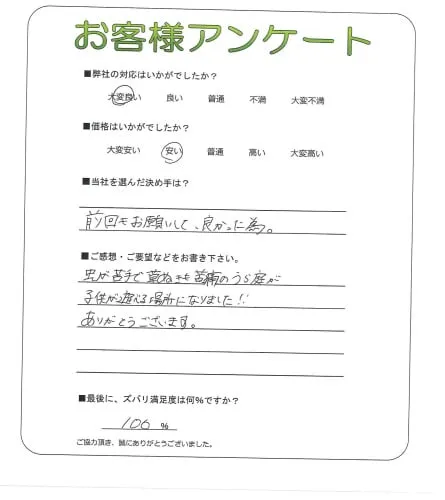 お客様アンケート
■弊社の対応はいかがでしたか?
大変良い 良い 普通 不満 大変不満
■価格はいかがでしたか?
大変安い 安い 普通 高い 大変高い
■当社を選んだ決め手は?
前回もお願いして、良かった為。
■ご感想・ご要望などをお書き下さい。
虫が苦手で草むしりも苦痛のうら庭が
子供が遊べる場所になりました!!
ありがとうございます。
■最後に、ズバリ満足度は何%ですか?
100 %
ご協力頂き、誠にありがとうございました。